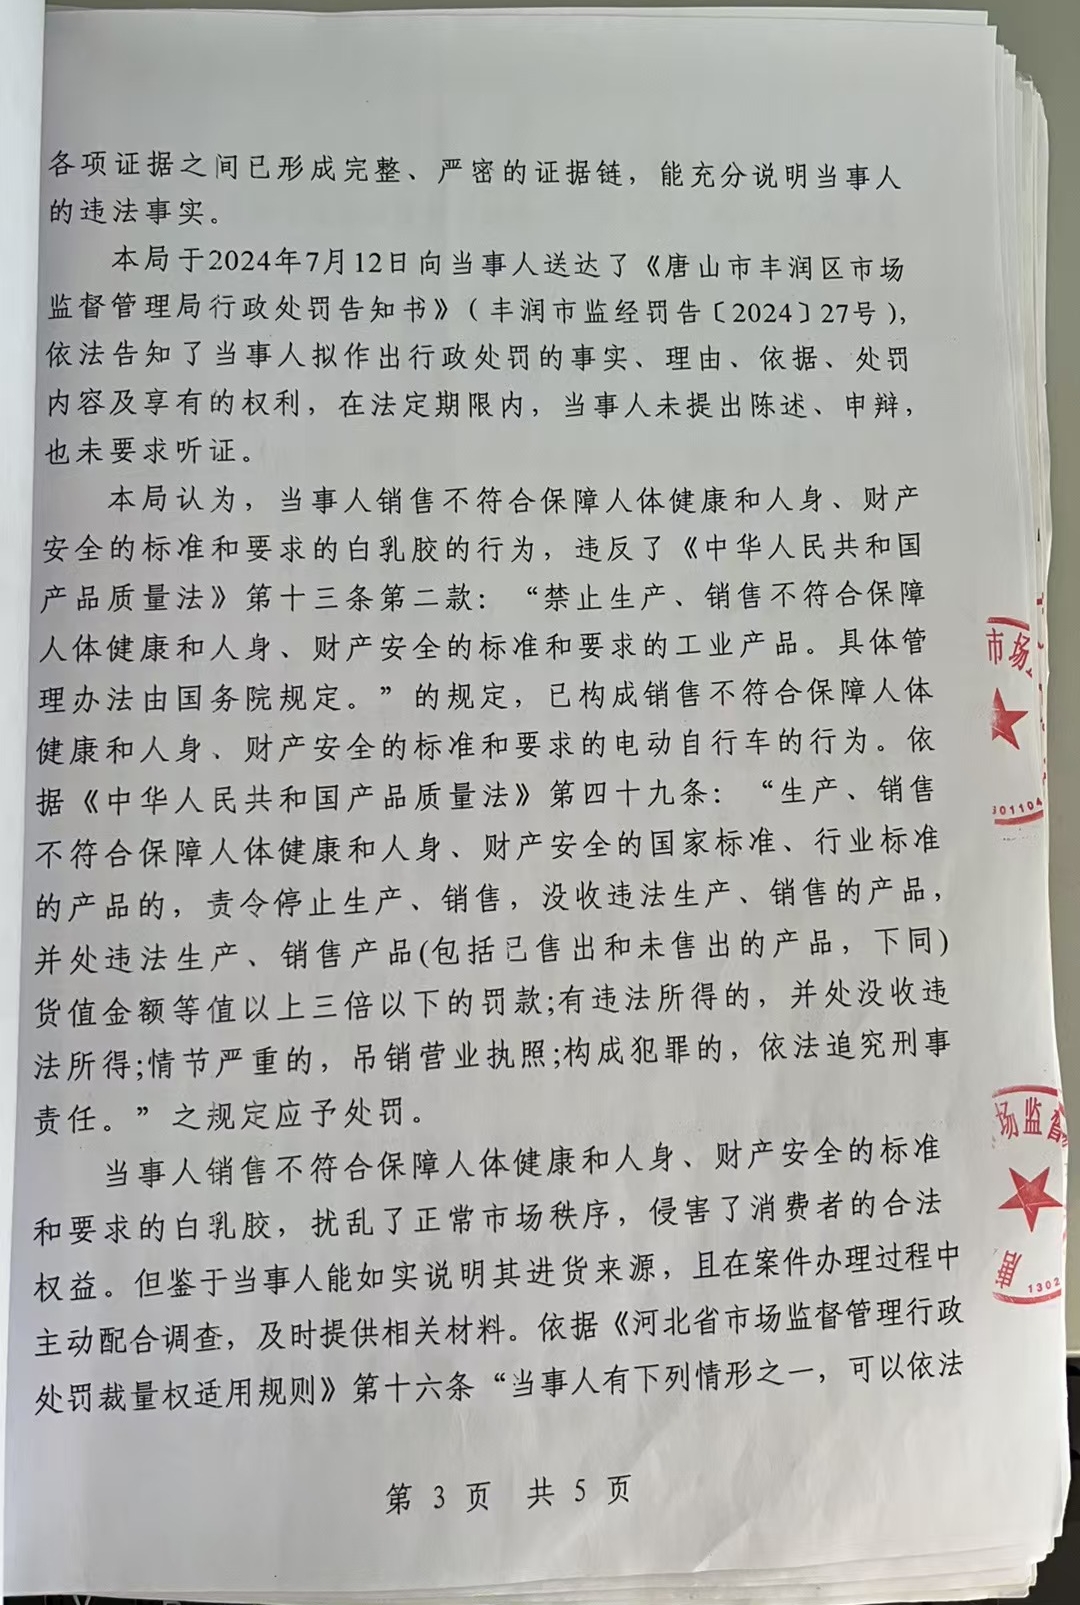 各项证据之间已形成完整、严密的证据链，能充分说明当事人
的违法事实。
本局于2024年7月12日向当事人送达了《唐山市丰润区市场
监督管理局行政处罚告知书》（丰润市监经罚告〔2024〕27号），
依法告知了当事人拟作出行政处罚的事实、理由、依据、处罚
内容及享有的权利，在法定期限内，当事人未提出陈述、申辩，
也未要求听证。
本局认为，当事人销售不符合保障人体健康和人身、财产
安全的标准和要求的白乳胶的行为，违反了《中华人民共和国
产品质量法》第十三条第二款：“禁止生产、销售不符合保障
人体健康和人身、财产安全的标准和要求的工业产品。具体管
理办法由国务院规定。”的规定，已构成销售不符合保障人体
健康和人身、财产安全的标准和要求的电动自行车的行为。依
据《中华人民共和国产品质量法》第四十九条：“生产、销售
不符合保障人体健康和人身、财产安全的国家标准、行业标准
的产品的，责令停止生产、销售，没收违法生产、销售的产品，
并处违法生产、销售产品(包括已售出和未售出的产品，下同)
货值金额等值以上三倍以下的罚款;有违法所得的，并处没收违
法所得;情节严重的，吊销营业执照;构成犯罪的，依法追究刑事
责任。”之规定应予处罚。
当事人销售不符合保障人体健康和人身、财产安全的标准
和要求的白乳胶，扰乱了正常市场秩序，侵害了消费者的合法
权益。但鉴于当事人能如实说明其进货来源，且在案件办理过程中
主动配合调查，及时提供相关材料。依据《河北省市场监督管理行政
处罚裁量权适用规则》第十六条“当事人有下列情形之一，可以依法
第 3 页 共 5 页
市场
301104
场监督
唐
1302